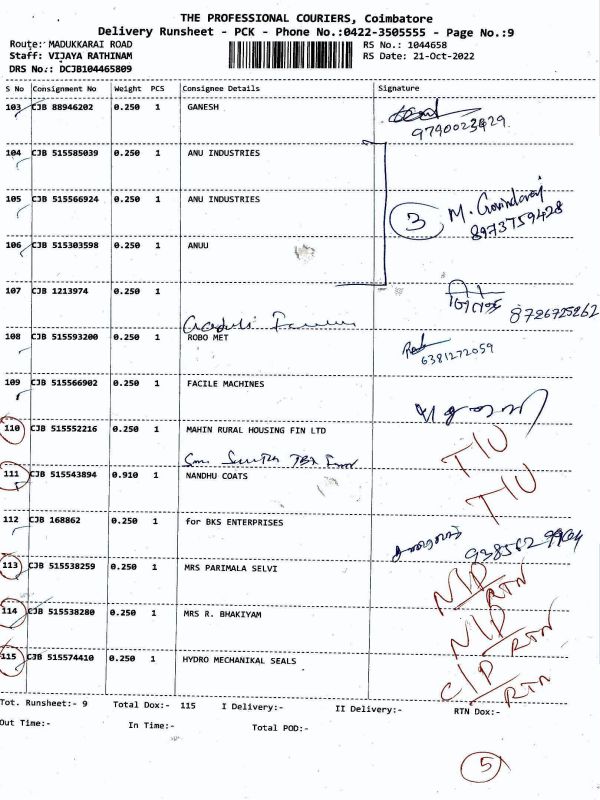 THE PROFESSIONAL COURIERS, Coimbatore
Delivery Runsheet - PCK - Phone No.:0422-3505555 - Page No.:9
Route: MADUKKARAI ROAD RS No.: 1044658
Staff: VIJAYA RATHINAM RS Date: 21-Oct-2022
DRS No.: DCJB104465809
S No Consignment No Weight PCS Consignee Details Signature
103 CJB 88946202 0.250 1 GANESH
9790023429
104 CJB 515585039 0.250 1 ANU INDUSTRIES
105 CJB 515566924 0.250 1 ANU INDUSTRIES
3 M. Govindaraj
8973759428
106 CJB 515303598 0.250 1 ANUU
107 CJB 1213974 0.250 1
8726725262
108 CJB 515593200 0.250 1 ROBO MET
6381272059
109 CJB 515566902 0.250 1 FACILE MACHINES
110 CJB 515552216 0.250 1 MAHIN RURAL HOUSING FIN LTD
T/U
111 CJB 515543894 0.910 1 NANDHU COATS
T/U
112 CJB 168862 0.250 1 for BKS ENTERPRISES
113 CJB 515538259 0.250 1 MRS PARIMALA SELVI
N/P RTN
114 CJB 515538280 0.250 1 MRS R. BHAKIYAM
N/P RTN
115 CJB 515574410 0.250 1 HYDRO MECHANIKAL SEALS
C/P RTN
Tot. Runsheet:- 9 Total Dox:- 115 I Delivery:- II Delivery:- RTN Dox:-
Out Time:- In Time:- Total POD:-
5